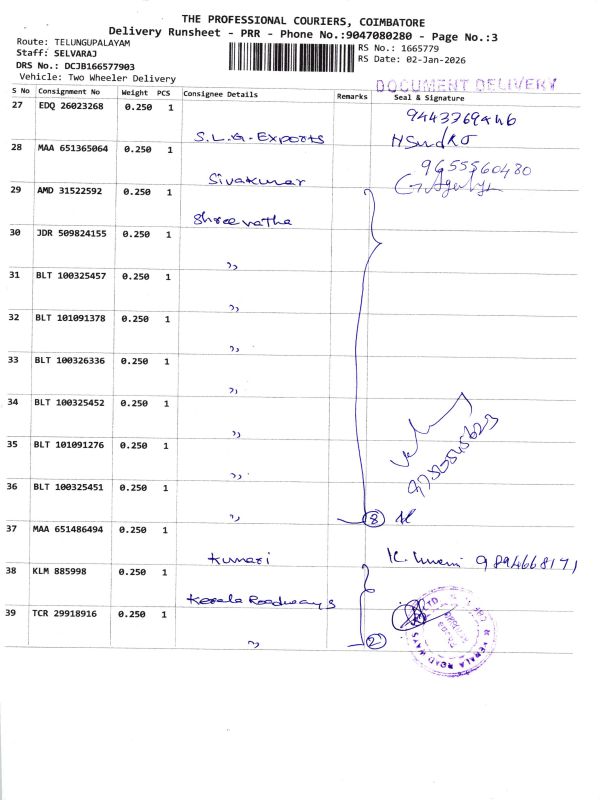 THE PROFESSIONAL COURIERS, COIMBATORE
Delivery Runsheet - PRR - Phone No.:9047080280 - Page No.:3
Route: TELUNGUPALAYAM
RS No.: 1665779
Staff: SELVARAJ
RS Date: 02-Jan-2026
DRS No.: DCJB166577903
Vehicle: Two Wheeler Delivery
DOCUMENT DELIVERY
S No Consignment No Weight PCS Consignee Details Remarks Seal & Signature
27 EDQ 26023268 0.250 1
S.L.G. Exports
28 MAA 651365064 0.250 1
9655560480
Sivakumar
29 AMD 31522592 0.250 1
Shreevatha
30 JDR 509824155 0.250 1
,,
31 BLT 100325457 0.250 1
,,
32 BLT 101091378 0.250 1
,,
33 BLT 100326336 0.250 1
,,
34 BLT 100325452 0.250 1
,,
35 BLT 101091276 0.250 1
,,
36 BLT 100325451 0.250 1
,, 8
37 MAA 651486494 0.250 1
Kumari
9894668171
38 KLM 885998 0.250 1
Kerala Roadways
39 TCR 29918916 0.250 1
,, 2
KERALA ROADWAYS